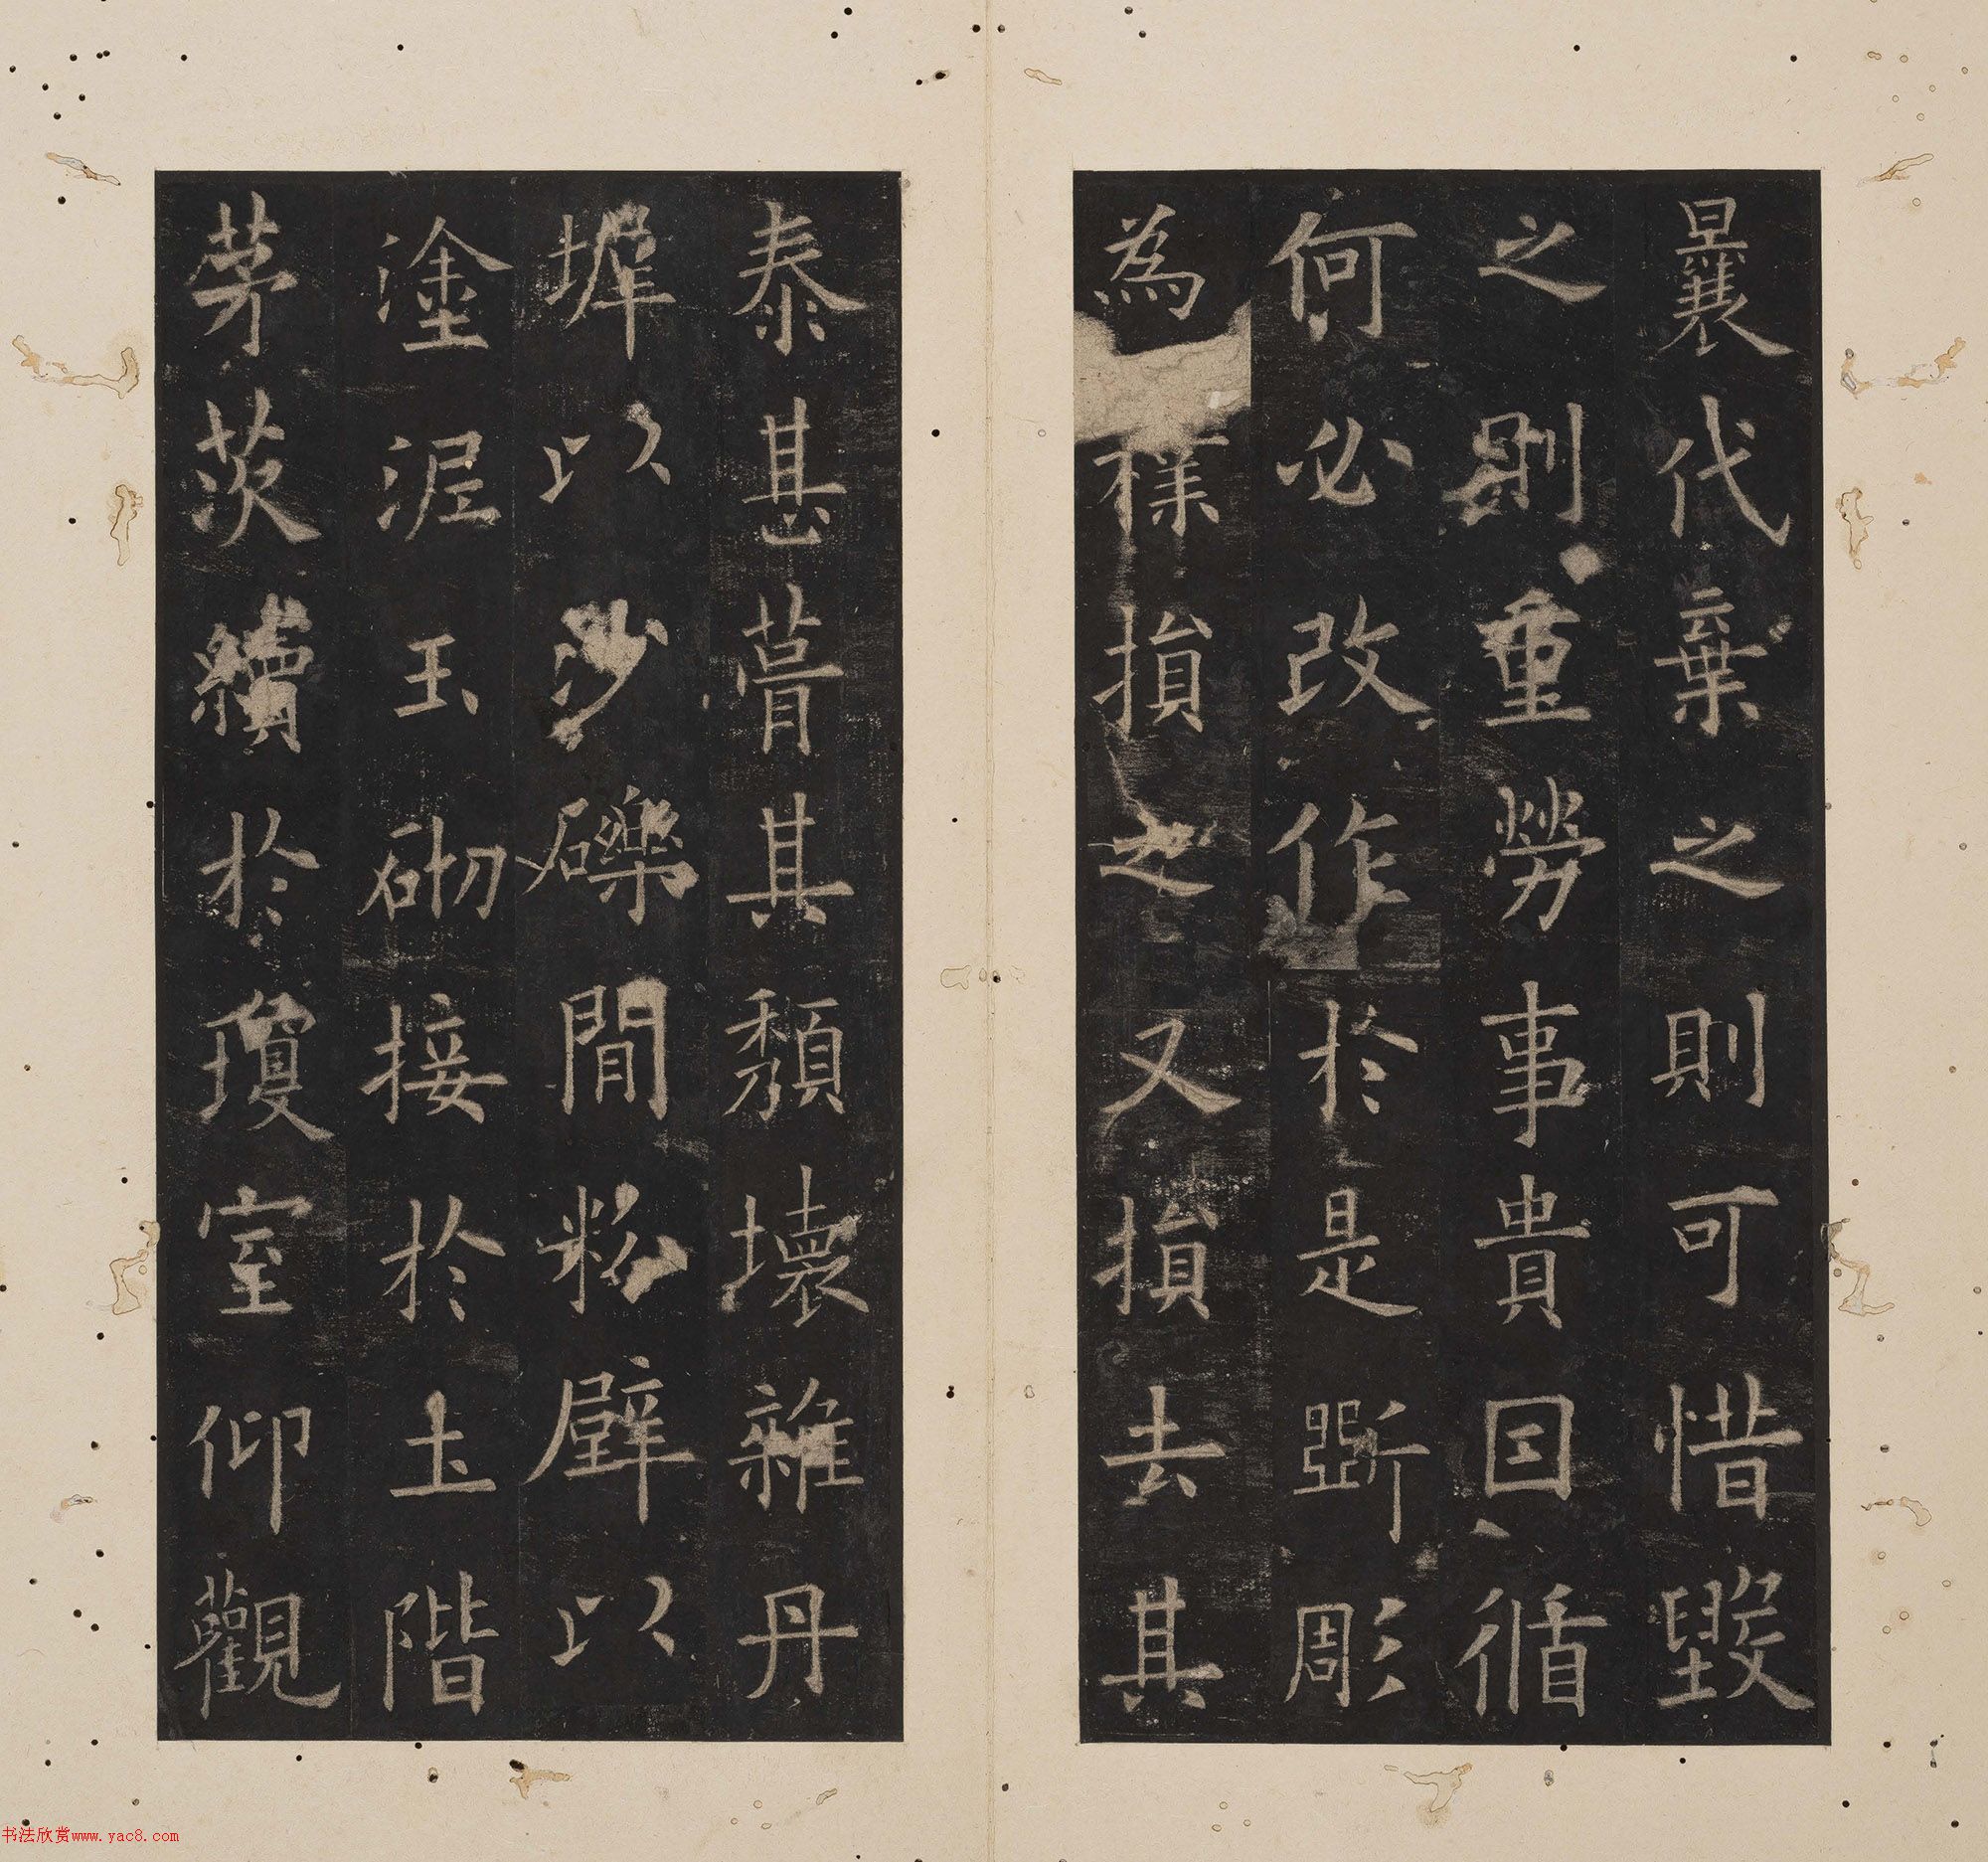 曩代棄之則可惜毀
之則重勞事貴因循
何必改作於是斲彫
為樸損之又損去其
泰甚葺其頹壞雜丹
墀以沙礫閒粉壁以
塗泥玉砌接於土階
茅茨續於瓊室仰觀
书法欣赏www.yac8.com